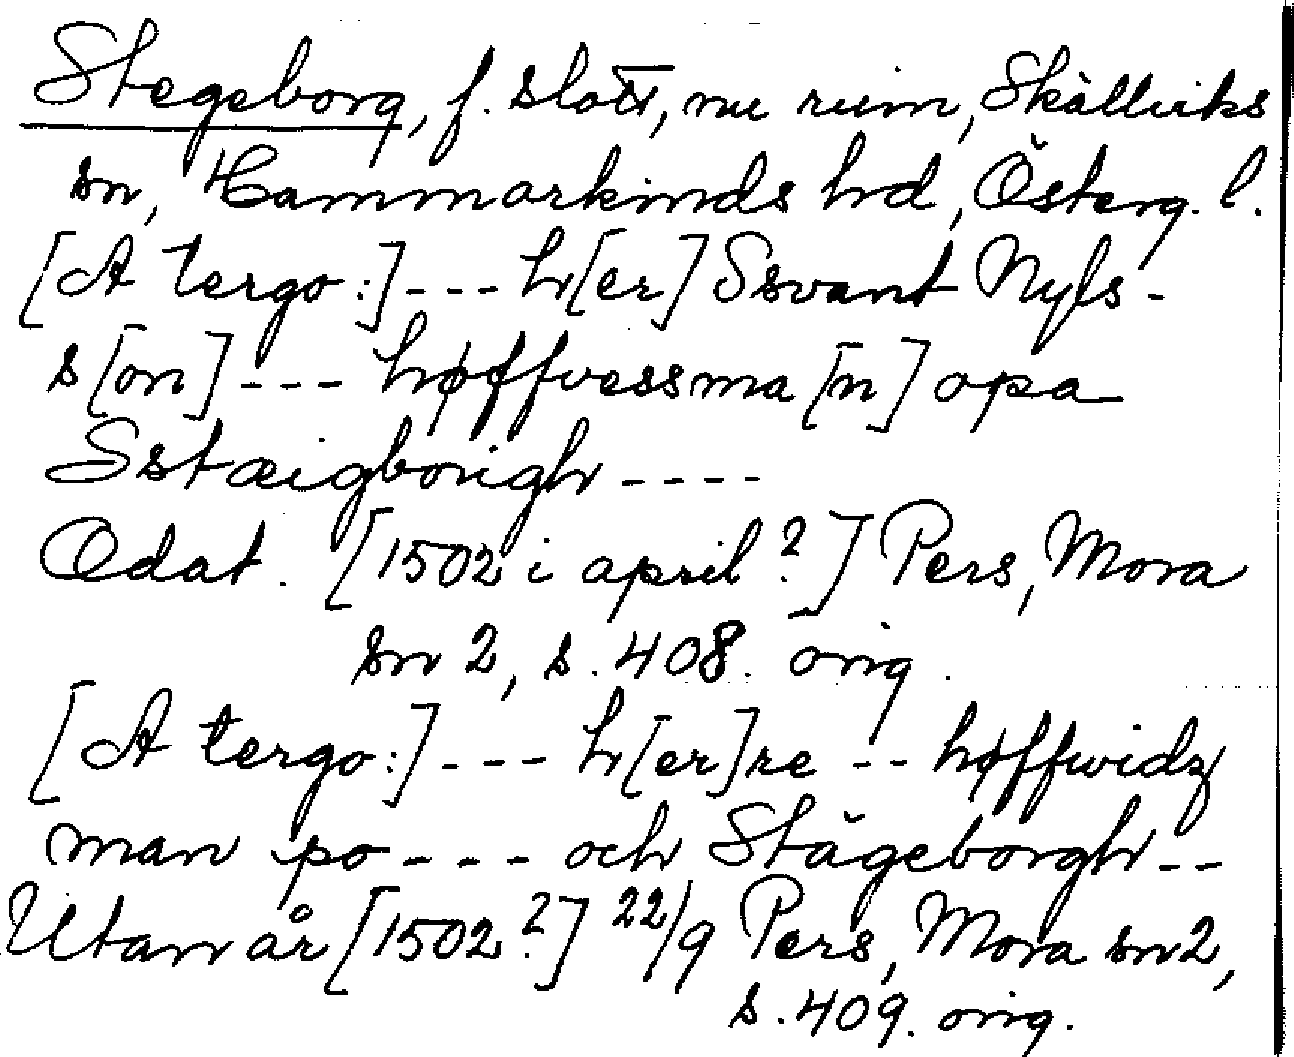 Stegeborg, f. slott, nu ruin, Skällviks
sn, Hammarkinds hd, Österg. l.
[A tergo:] --- h[er] Ssvant Nyls-
s[on] --- høffvessma[n] opa
Sstæigborigh ----
Odat. [1502 i april?] Pers, Mora
sn 2, s. 408. orig.
[A tergo:] --- h[er]re -- høffwidz
man po --- och Stägeborgh --
Utan år [1502?] 22/9 Pers, Mora sn 2,
s. 409. orig.